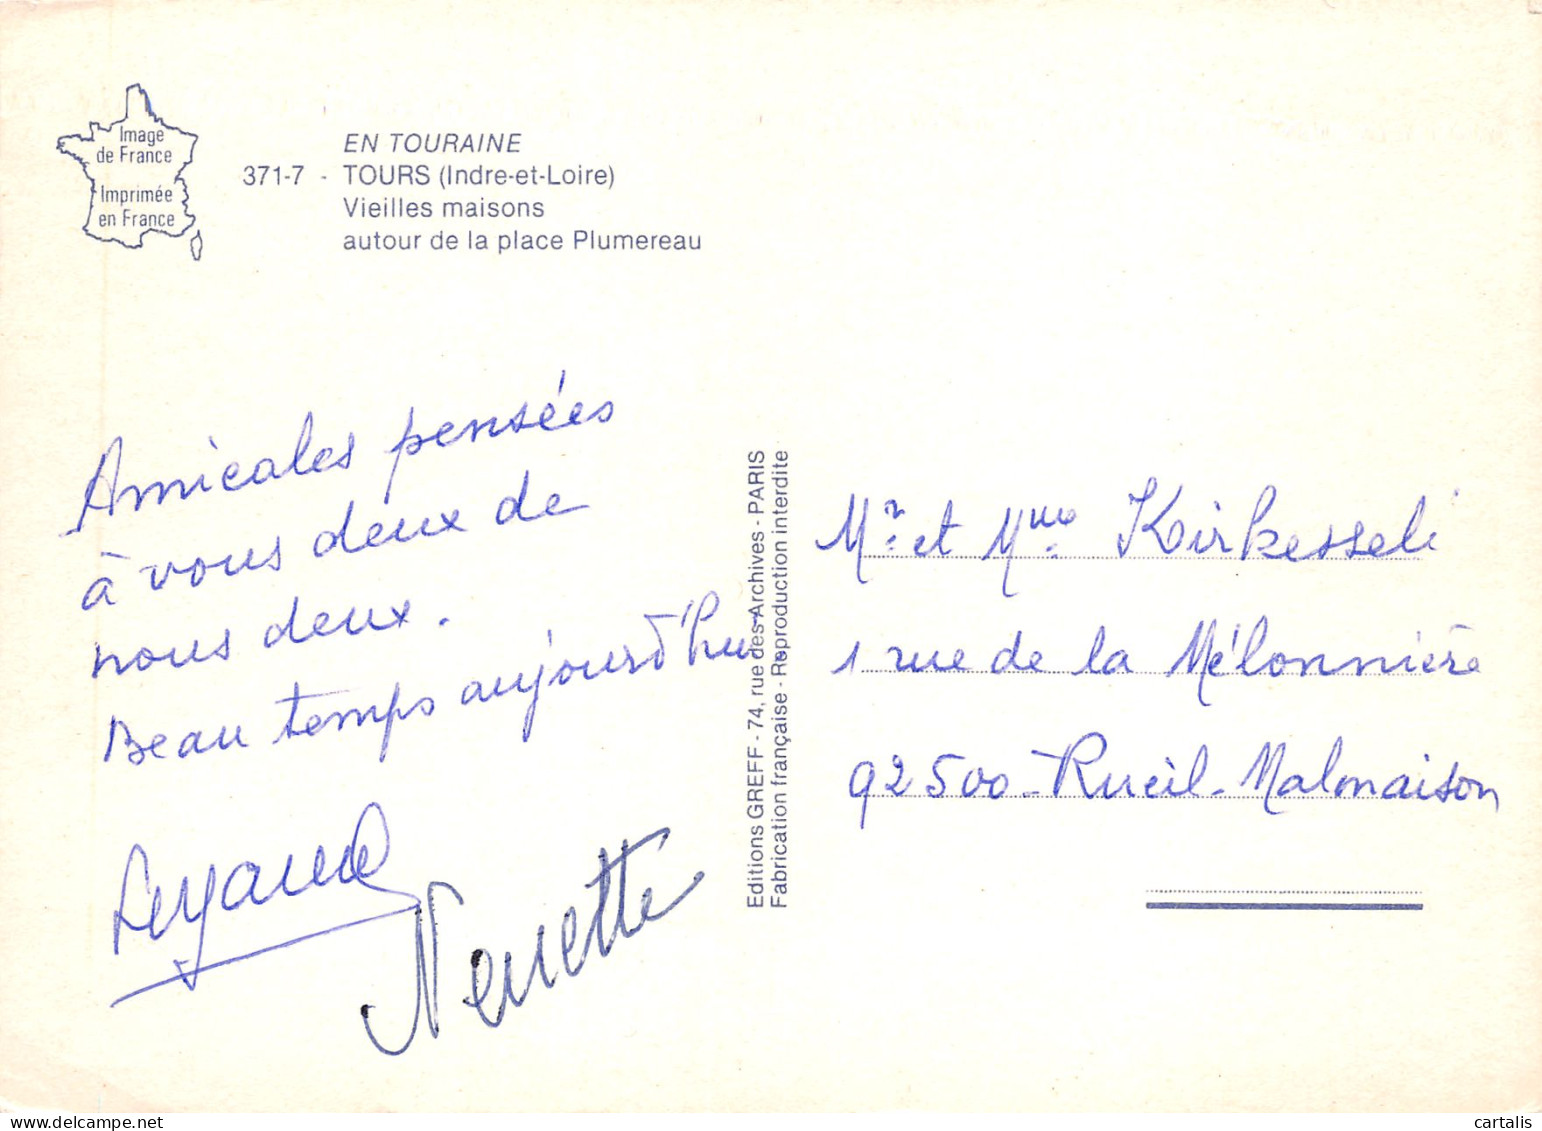 Image
de France
Imprimée
en France
EN TOURAINE
371-7 - TOURS (Indre-et-Loire)
Vieilles maisons
autour de la place Plumereau
Amicales pensées
à vous deux de
nous deux.
Beau temps aujourd'hui
Nenette
Editions GREFF - 74, rue des Archives - PARIS
Fabrication française - Reproduction interdite
Mr et Mme Kirkesseli
1 rue de la Mélonnière
92500 - Rueil-Malmaison
cartalis